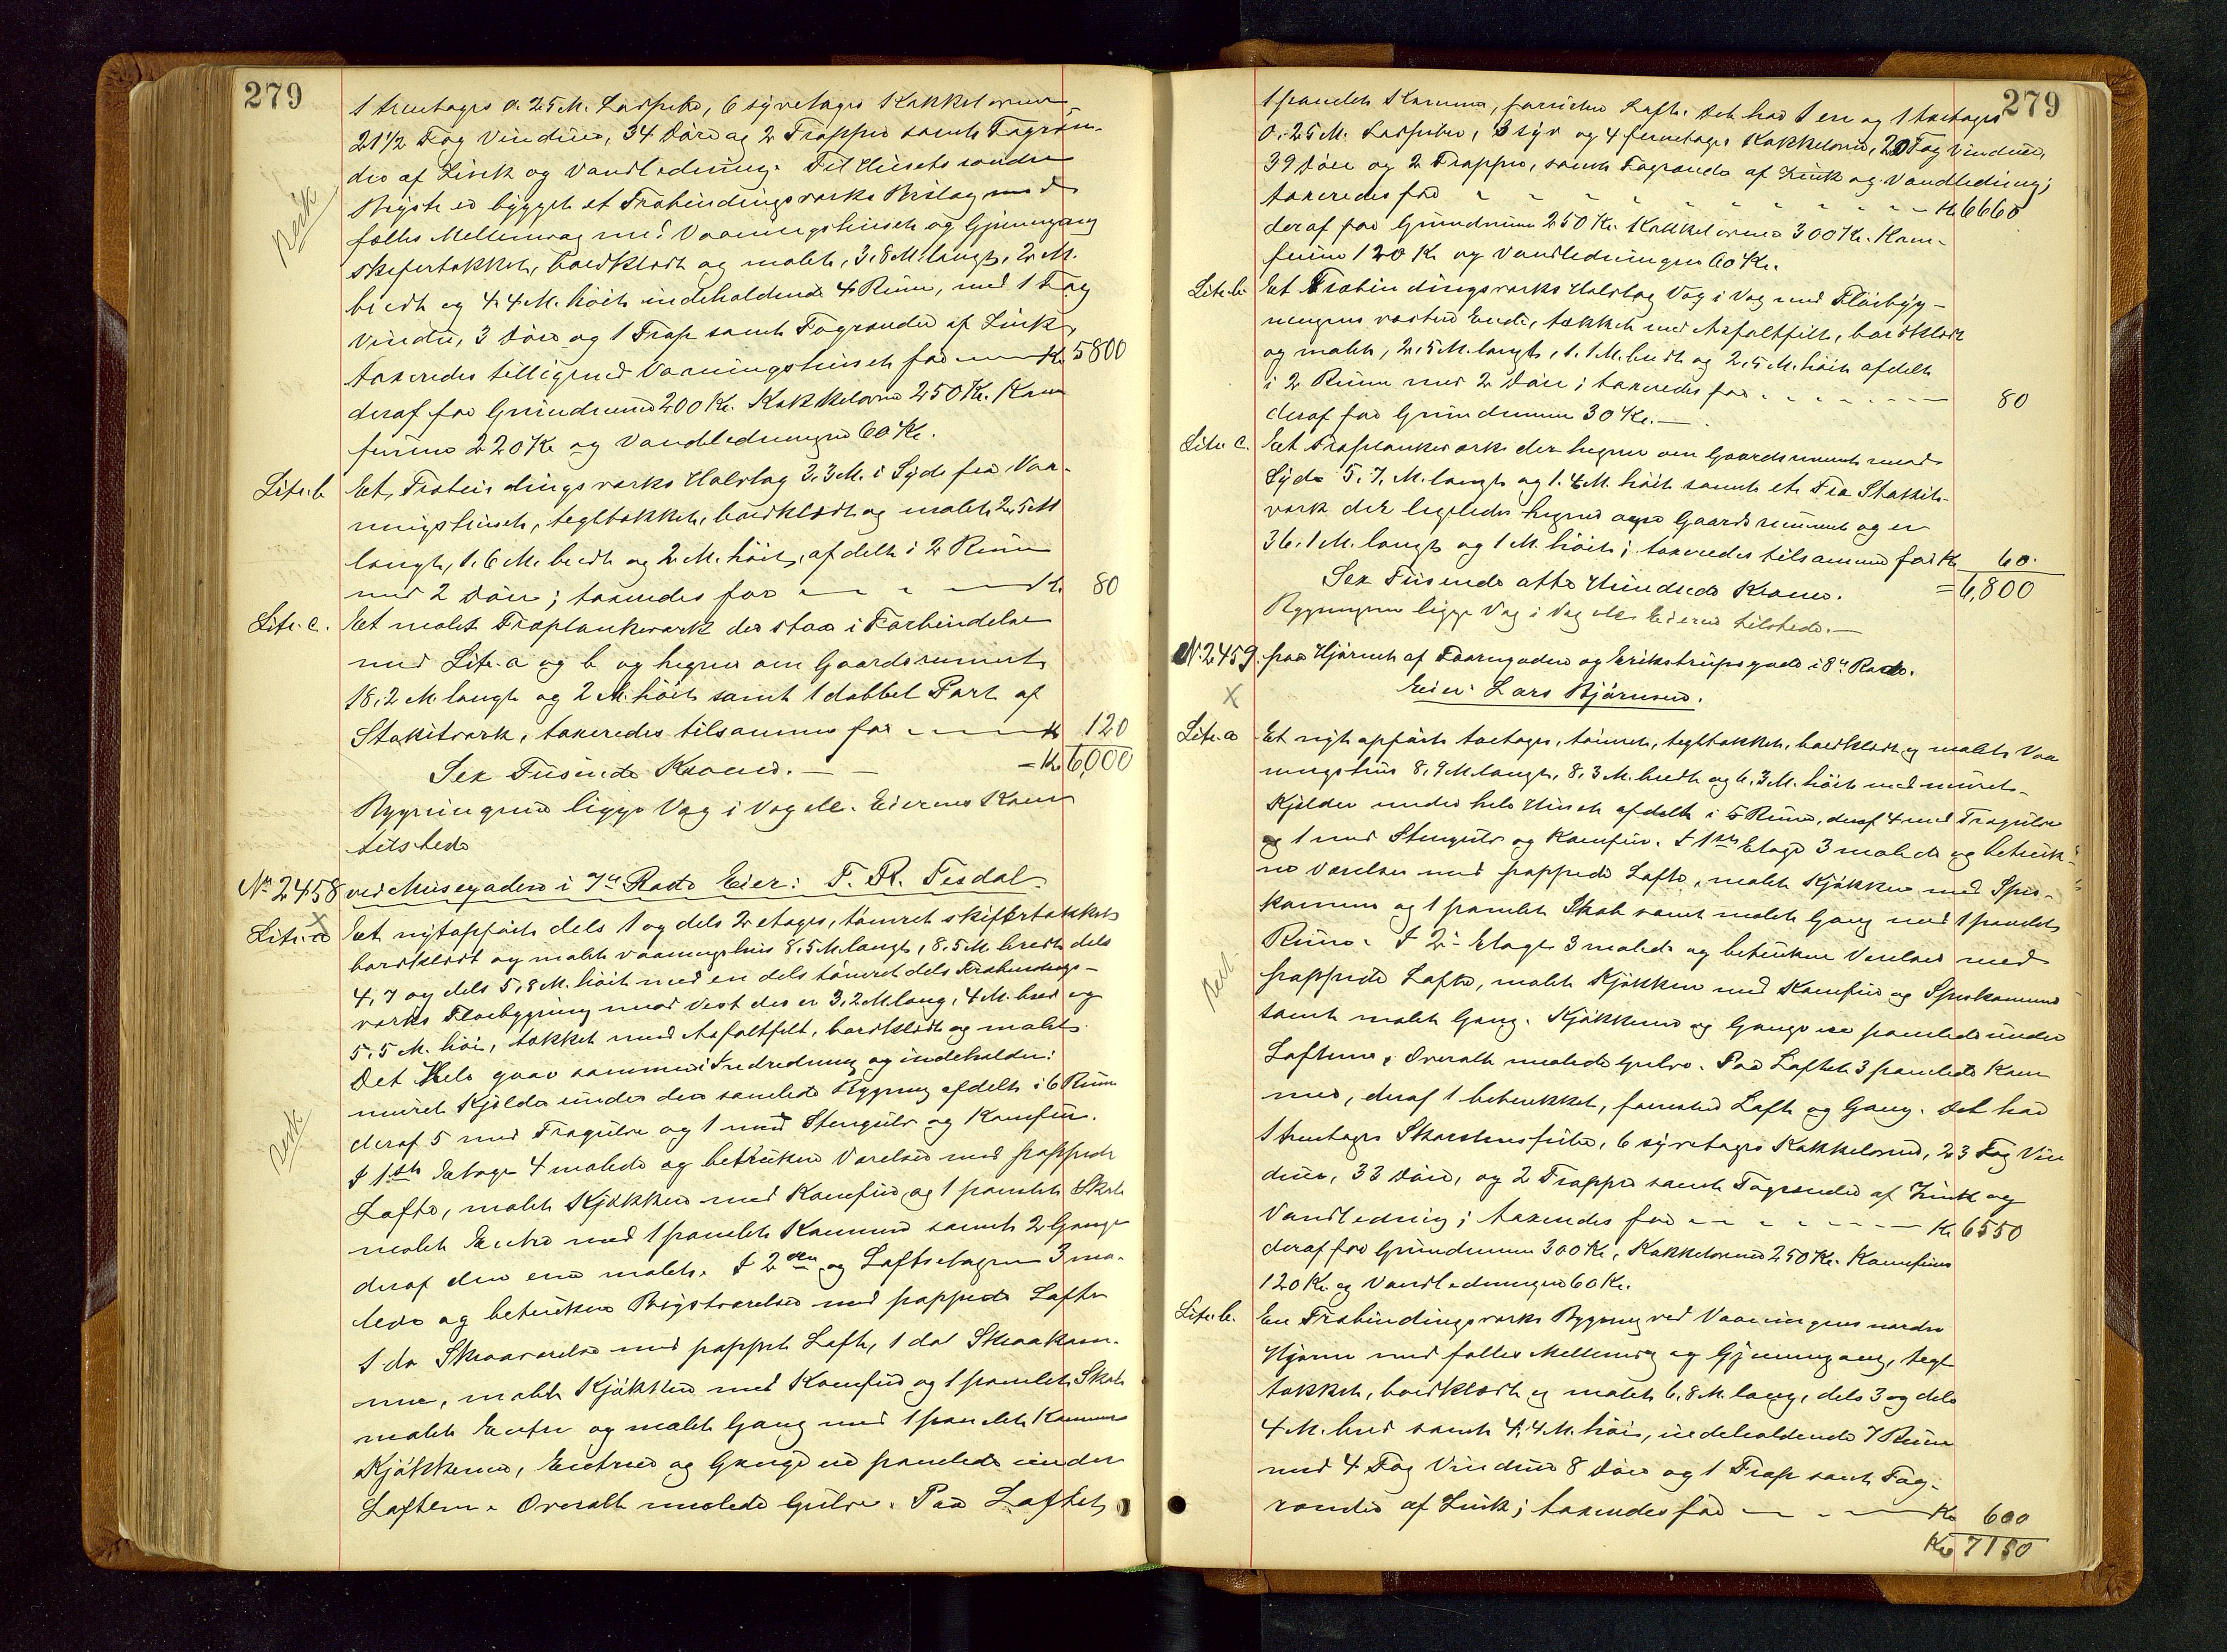 279
1 trætages a. 25 M. Ladpibe, 6 syvetages Kakkelovne
21 1/2 Fag Vinduer, 34 Döre og 2 Trapper samt Tagrön-
der af Zink og Vandledning. Til Husets søndre
er bygget et Træbindingsværks Bislag med
fælles Mellemvæg med Vaaningshuset og Gjennemgang
skifertækket, bordklædt og malet, 3,8 M. langt, 2 M.
bredt og 4.4 M. höit indeholdende 4 Rum, med 1 Fag
Vindu, 3 Döre og 1 Trap samt Tagrender af Zink,
taxeredes tilligemed Vaaningshuset for Kr 5800
deraf for Grundmuren 200 Kr. Kakkelovne 250 Kr. Kom
furerne 220 Kr og Vandledningen 60 Kr.
Litr. b Et Træbindingsværks Halvtag 3.3 M. i Syd fra Vaa-
ningshuset, tegltækket, bordklædt og malet 2,5 M
langt, 1.6 M. bredt og 2 M. höit, afdelt i 2 Rum
med 2 Döre; taxeredes for Kr. 80
Litr. c. Et malet Træplankeværk der staar i Forbindelse
med Litr. a og b og hegner om Gaardsrummet
18,2 M. langt og 2 M. höit samt 1 dobbel Port af
Stakitværk, taxeredes tilsammen for Kr 120
Sex Tusinde Kroner. = Kr 6,000
Bygningerne ligger Væg i Væg. Eierens Kone
tilstede
Nr. 2458 ved Musegaden i 7de Rode Eier: T. R. Tesdal.
Litr. a Et nytopfört dels 1 og dels 2 etages, tömret skifertækket
bordklædt og malet vaaningshus 8,5 M. langt, 8,5 M. bredt dels
4,7 og dels 5,8 M. höit med en dels tömret dels Træbindings-
værks Flöibygning mod Vest der er 3,2 M lang, 4 M. bred og
5,5 M. höi, tækket med Asfaltfilt, bordklædt og malet.
Det Hele gaar sammen i Indredning og indeholder:
muret Kjelder under den samlede Bygning afdelt i 6 Rum
deraf 5 med Trægulve og 1 med Stengulv og Komfur.
I 1ste Etage 4 malede og betrukne Værelser med pappede
Lofte, malet Kjökken med Komfur og 1 panelet Skab
malet Entre med 1 panelet Kammer samt 2 Gange
deraf den ene malet. I 2den og Loftsetagen 3 ma-
lede og betrukne Kvistværelser med pappede Lofte
1 do Skraaværelse med pappet Loft, 1 do Skraakam-
mer, malet Kjökken med Komfur og 1 panelet Skab
malet Entre og malet Gang med 1 panelet Kammer
Kjökkener, Entreer og Gange er panelede under
Loftene. Overalt malede Gulve. Paa Loftet
279
1 panelet Kammer, forövrigt Loft. Det har 1 en og 1 toetages
0.25 M. Ladpiber, 3 syv og 4 femetages Kakkelovne, 20 Fag Vinduer,
39 Döre og 2 Trapper, samt Tagrender af Zink og Vandledning;
taxeredes for Kr 6660
deraf for Grundmuren 250 Kr. Kakkelovne 300 Kr. Kom-
furene 120 Kr og Vandledningen 60 Kr.
Litr. b. Et Træbindingsværks Halvtag Væg i Væg med Flöibyg-
ningens vestre Ende, tækket med Asfaltfilt, bordklædt
og malet, 2,5 M. langt, 1.1 M. bredt og 2,5 M. höit afdelt
i 2 Rum med 2 Döre; taxeredes for 80
deraf for Grundmuren 30 Kr.
Litr. c. Et Træplankeværk der hegner om Gaardsrummet mod
Syd 5,7, M. langt og 1.4 M. höit samt et Træ Stakit-
værk der ligeledes hegner Gaardsrummet og er
36,1 M. langt og 1 M. höit; taxeredes tilsammen for Kr 60.
Sex Tusinde otte Hundrede Kroner. = 6,800
Bygningerne ligger Væg i Væg Eieren tilstede.
Nr. 2459. paa Hjörnet af Taarngaden og Erikstrupsgade i 8de Rode.
Eier: Lars Björnsen.
Litr. a Et nyt opfört toetages, tömret, tegltækket, bordklædt og malet Vaa
ningshus 8,9 M. langt, 8,3 M. bredt og 6,3 M. höit med muret
Kjelder under hele Huset afdelt i 5 Rum, deraf 4 med Trægulve
og 1 med Stengulv og Komfur. I 1ste Etage 3 malede og betruk-
ne Værelser med pappede Lofte, malet Kjökken med Spis-
kammer og 1 panelet Skab samt malet Gang med 1 panelet
Rum. I 2 Etage 3 malede og betrukne Værelser med
pappede Lofte, malet Kjökken med Komfur og Spiskammer
samt malet Gang. Kjökkener og Gange ere panelede under
Loftene, Overalt malede Gulve. Paa Loftet 3 panelede Kam
mer, deraf 1 betrukket, forövrigt Loft og Gang. Det har
1 tretages Skorstenspibe, 6 syvetages Kakkelovne, 23 Fag Vin
duer, 33 Döre, og 2 Trapper samt Tagrender af Zink og
Vandledning; taxeredes for Kr 6550
deraf for Grundmuren 300 Kr, Kakkelovne 250 Kr. Komfurer
120 Kr og Vandledningen 60 Kr.
Litr. b. En Træbindingsværks Bygning ved Vaaningens nordre
Hjörne med fælles Mellemvæg og Gjennemgang, tegl
tækket, bordklædt og malet 6,8 M. lang, dels 3 og dels
4 M. bred samt 4,4 M. höi, indeholdende 7 Rum
med 4 Fag Vinduer 8 Döre og 1 Trap samt Tag-
render af Zink; taxeredes for Kr 600
Kr 7150